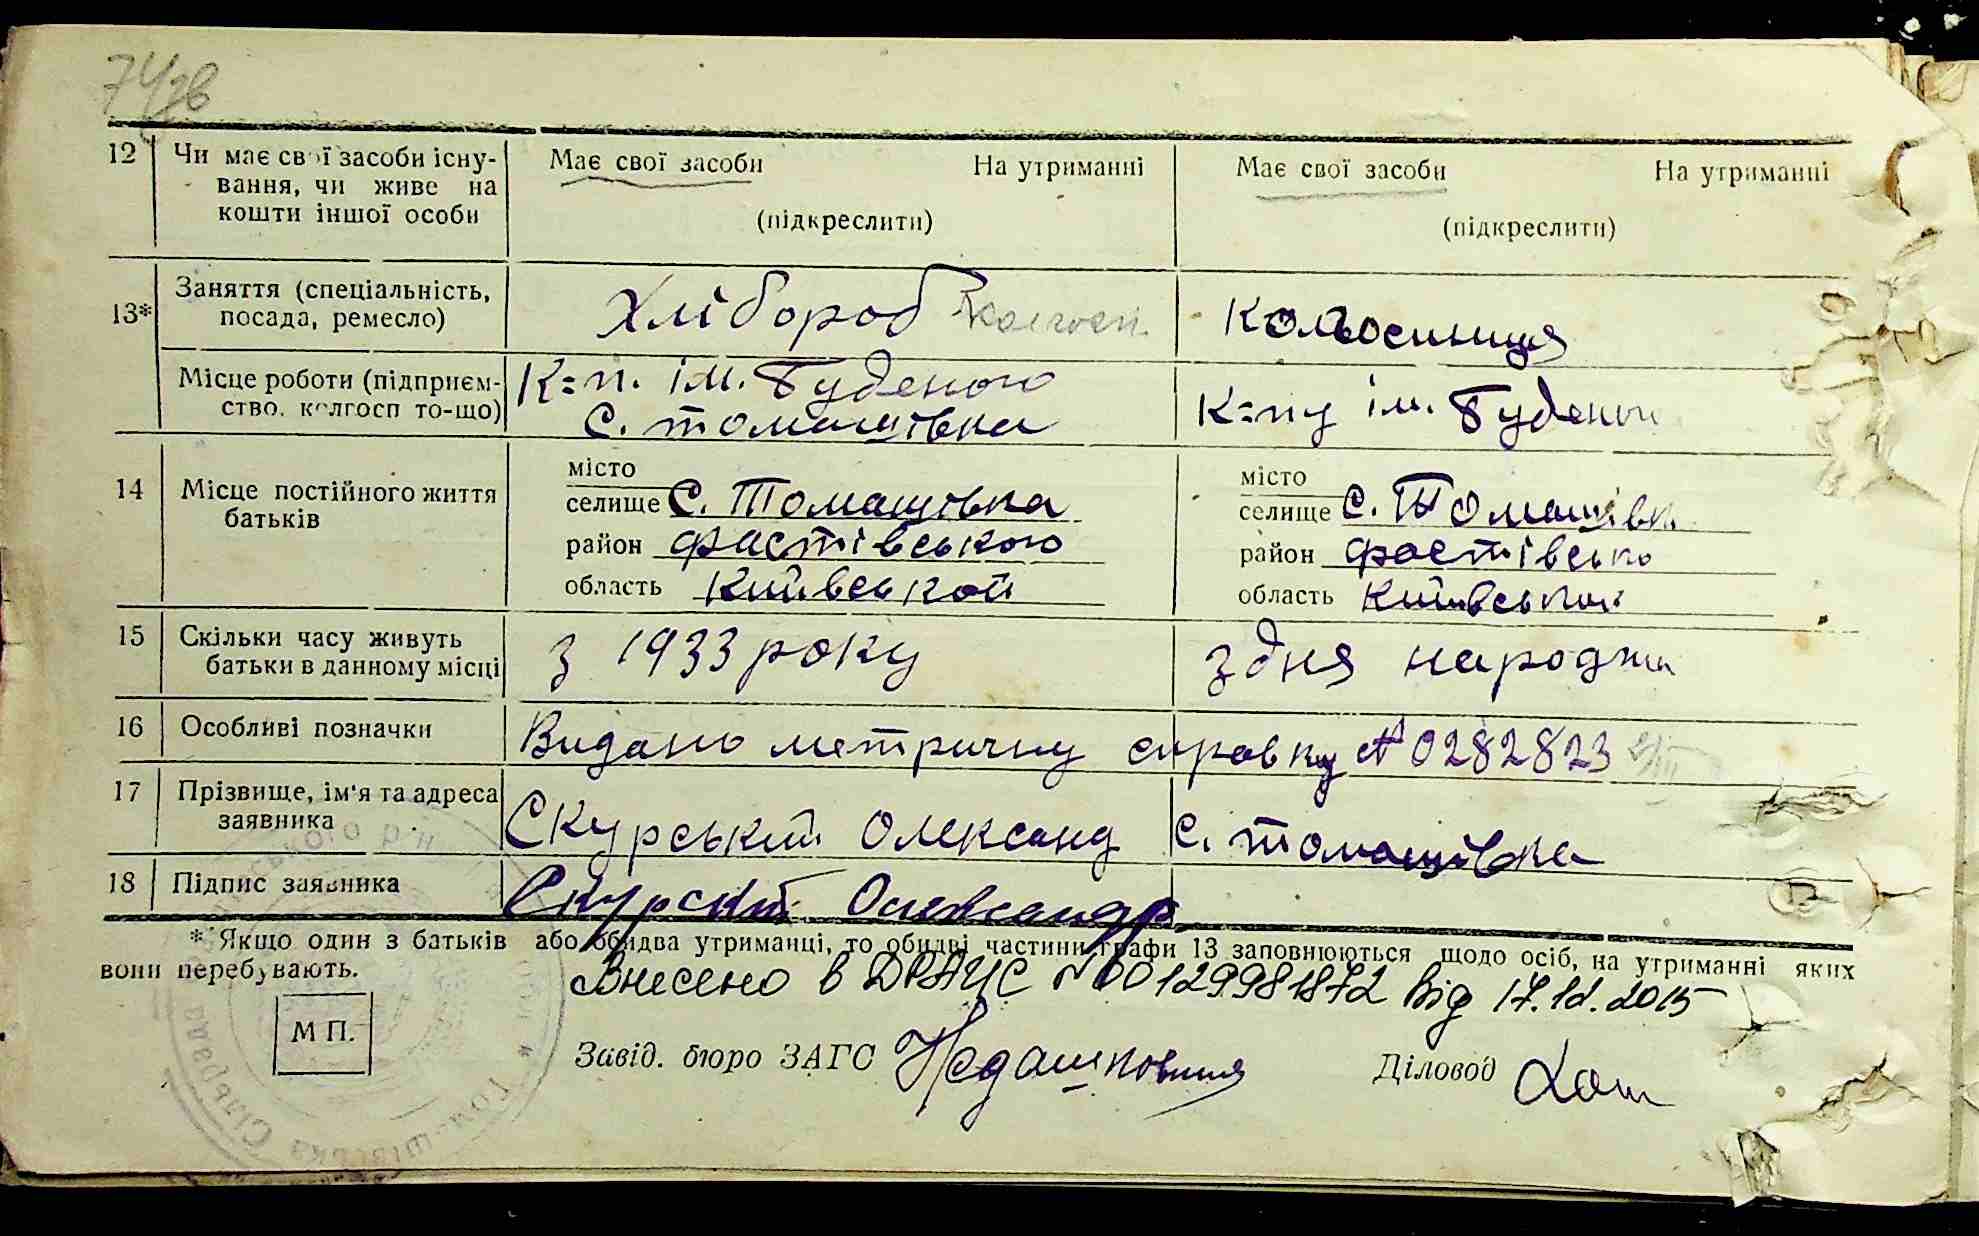 74зв
12 Чи має свої засоби існу- Має свої засоби На утриманні Має свої засоби На утриманні
вання, чи живе на
кошти іншої особи (підкреслити) (підкреслити)
13* Заняття (спеціальність, Хлібороб колгосп. колгосниця
посада, ремесло)
Місце роботи (підприєм- К=п. ім. Буденого К=пу ім. Буденого
ство, колгосп то-що) с. томашівка
14 Місце постійного життя місто місто
батьків селище С. Томашівка селище С. Томашівк
район фастівського район фастівсько
область Київської область Київської
15 Скільки часу живуть з 1933 року з дня народжн
батьки в данному місці
16 Особливі позначки Видано метричну справку № 0282823
17 Прізвище, ім'я та адреса
заявника Скурський Олександ с. томашівка
18 Підпис заявника Скурский Олександр
* Якщо один з батьків або обидва утриманці, то обидві частини графи 13 заповнюються щодо осіб, на утриманні яких
вони перебувають.
Внесено в ДРАЦС № 00129981872 від 17.12.2015
М П. Завід. бюро ЗАГС Діловод